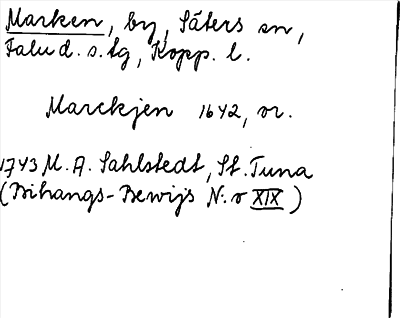 Marken, by, Säters sn,
Falu d. s. lg, Kopp. l.
Marckjen 1642, or.
1743 M. A. Sahlstedt, St. Tuna
(Bihangs-Bewijs N:o XIX)